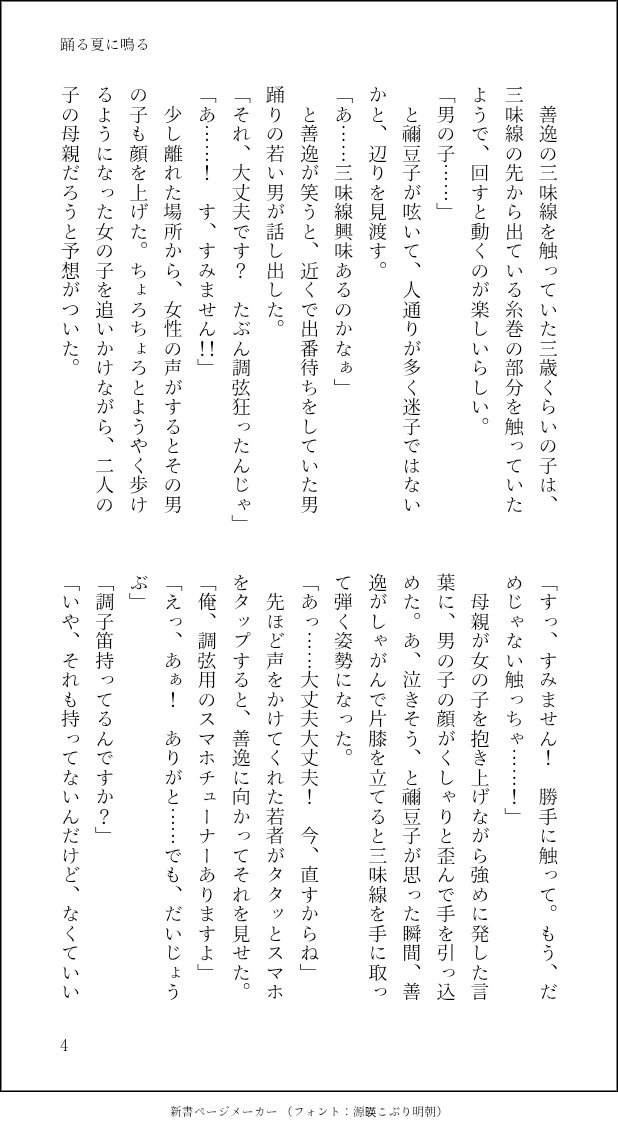 踊る夏に鳴る
　善逸の三味線を触っていた三歳くらいの子は、
三味線の先から出ている糸巻の部分を触っていた
ようで、回すと動くのが楽しいらしい。
「男の子……」
　と禰豆子が呟いて、人通りが多く迷子ではない
かと、辺りを見渡す。
「あ……三味線興味あるのかなぁ」
　と善逸が笑うと、近くで出番待ちをしていた男
踊りの若い男が話し出した。
「それ、大丈夫です？　たぶん調弦狂ったんじゃ」
「あ……！　す、すみません!!」
　少し離れた場所から、女性の声がするとその男
の子も顔を上げた。ちょろちょろとようやく歩け
るようになった女の子を追いかけながら、二人の
子の母親だろうと予想がついた。
「すっ、すみません！　勝手に触って。もう、だ
めじゃない触っちゃ……！」
　母親が女の子を抱き上げながら強めに発した言
葉に、男の子の顔がくしゃりと歪んで手を引っ込
めた。あ、泣きそう、と禰豆子が思った瞬間、善
逸がしゃがんで片膝を立てると三味線を手に取っ
て弾く姿勢になった。
「あっ……大丈夫大丈夫！　今、直すからね」
　先ほど声をかけてくれた若者がタタッとスマホ
をタップすると、善逸に向かってそれを見せた。
「俺、調弦用のスマホチューナーありますよ」
「えっ、あぁ！　ありがと……でも、だいじょう
ぶ」
「調子笛持ってるんですか？」
「いや、それも持ってないんだけど、なくていい
4
新書ページメーカー（フォント：源暎こぶり明朝）